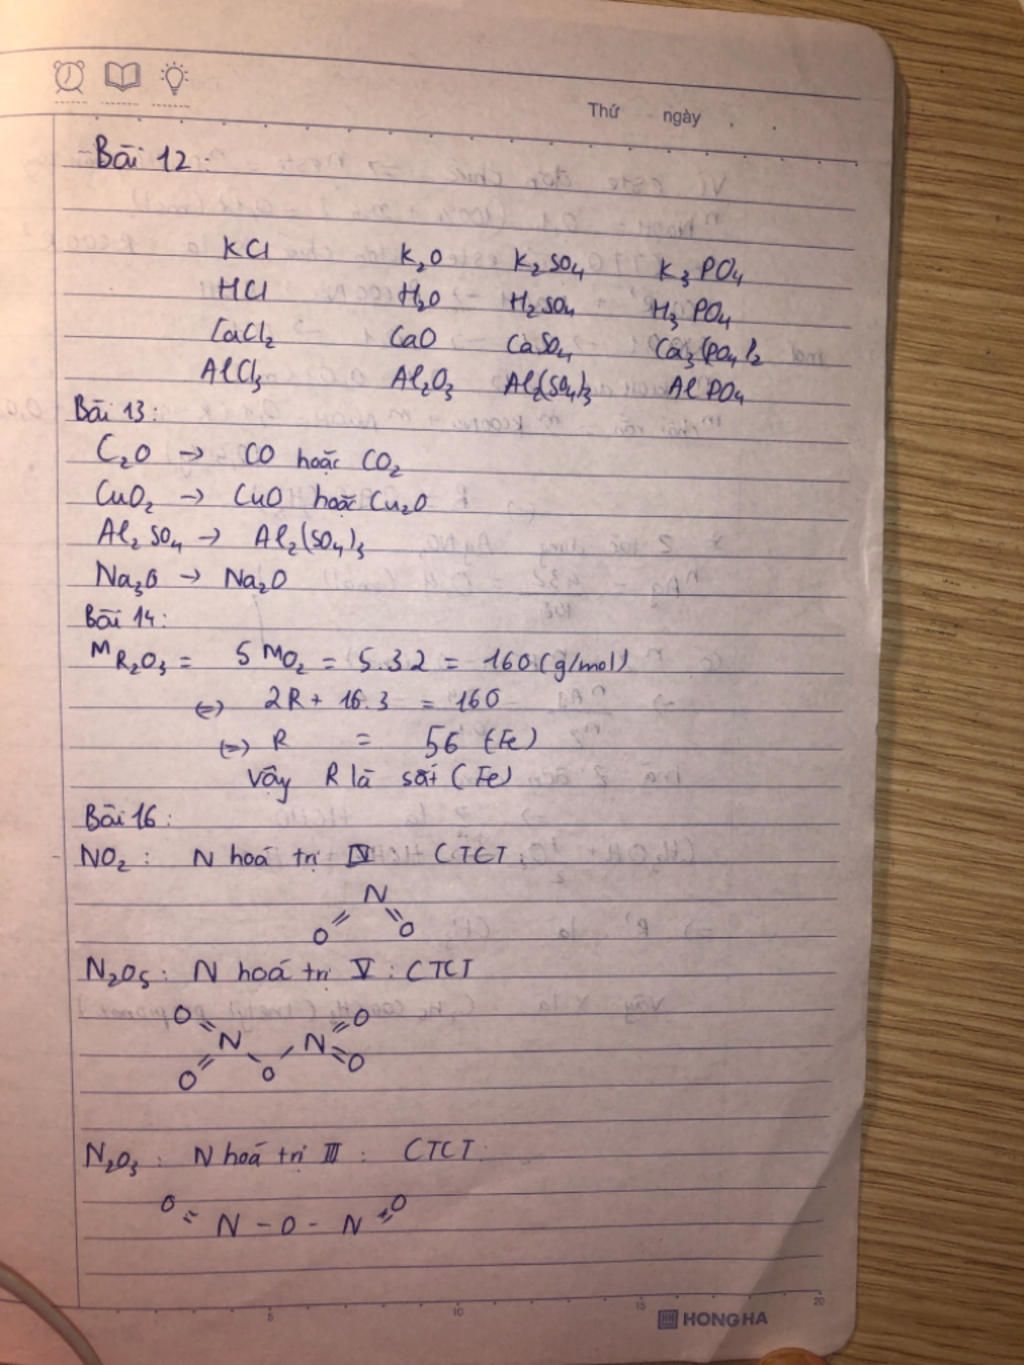 Thứ ngày
Bài 12:
KCl K₂O K₂SO₄ K₃PO₄
HCl H₂O H₂SO₄ H₃PO₄
CaCl₂ CaO CaSO₄ Ca₃(PO₄)₂
AlCl₃ Al₂O₃ Al₂(SO₄)₃ AlPO₄
Bài 13:
C₂O → CO hoặc CO₂
CuO₂ → CuO hoặc Cu₂O
Al₂SO₄ → Al₂(SO₄)₃
Na₃O → Na₂O
Bài 14:
M R₂O₃ = 5 M O₂ = 5.32 = 160(g/mol)
(=) 2R + 16.3 = 160
(=) R = 56 (Fe)
Vậy R là sắt (Fe)
Bài 16:
NO₂ : N hoá trị IV CTCT,
N
O = = O
N₂O₅ : N hoá trị V : CTCT
O = = O
N N = O
O = - O -
N₂O₃ : N hoá trị III : CTCT:
O = N - O - N = O
5 10 15 20
HONG HA